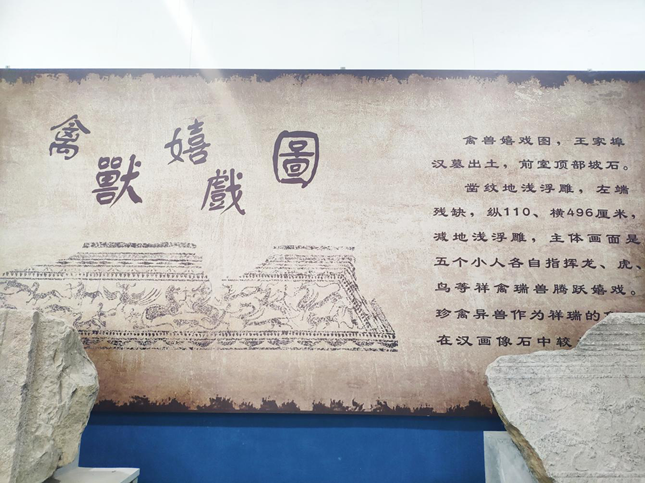 禽獸嬉戲圖
禽兽嬉戏图，王家埠
汉墓出土，前室顶部坡石。
凿纹地浅浮雕，左端
残缺，纵110、横496厘米，
减地浅浮雕，主体画面是
五个小人各自指挥龙、虎、
鸟等祥禽瑞兽腾跃嬉戏。
珍禽异兽作为祥瑞的
在汉画像石中较